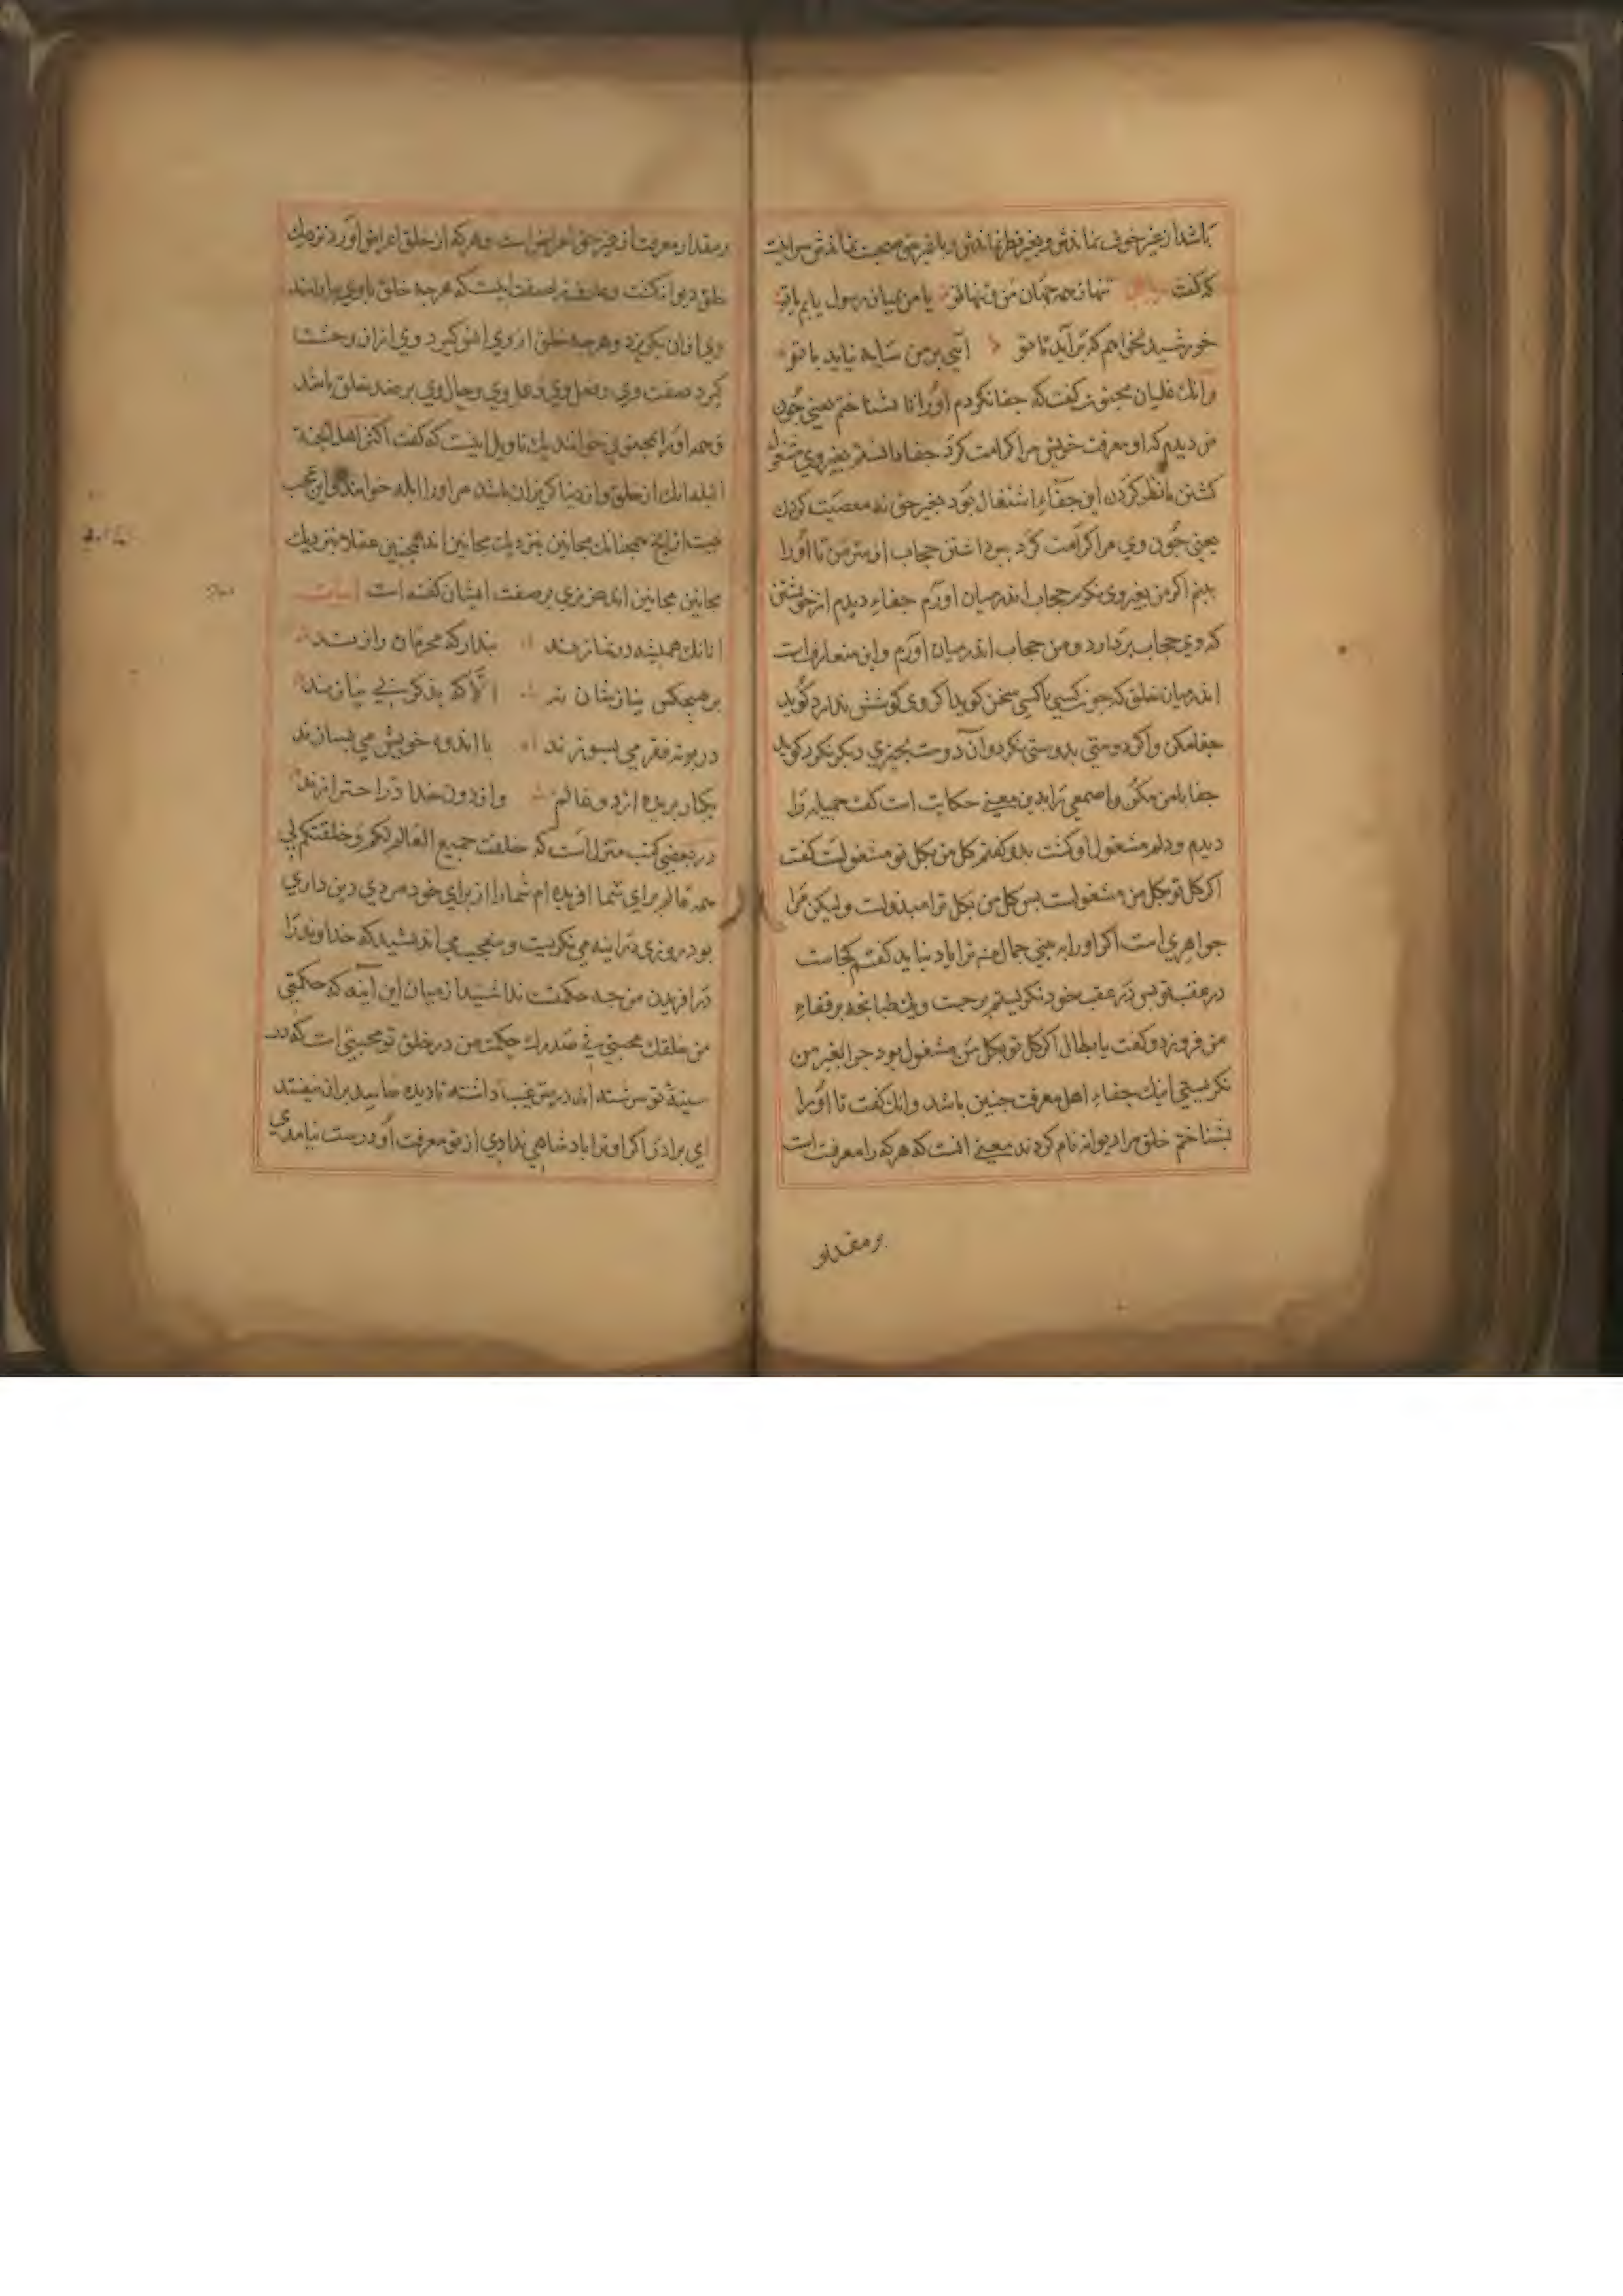 باشد از غیر خوف نماندش و بغیر نظر نماندش و با غیر حق صحبت نماندش
که گفت تنها ز همه جهان من و تنها تو یا من میان رسول یابم یا تو
خورشید نخواهم که برآید تا تو آئی بر من سایه نیاید با تو
وانك علیان مجنون گفت که جفا نکردم اورا تا بشناختم یعنی چون
من دیدم که او بمعرفت خویش مرا کرامت کرد جفا دانستم بغیر وی مشغول
کشتن نظر کردن این جفاء اشتغال بود بغیر حق نه معصیت کردن
یعنی چون وی مرا کرامت کرد ببرداشتن حجاب از سر من تا اورا
بینم اکر من بغیر وی نکرم حجاب اندر میان اورم جفاء دیدم از خویشتن
که وی حجاب بردارد و من حجاب اندر میان آورم و این متعارفست
اندر میان خلق که چون کسی با کسی سخن کوید اکر وی کوشش ندارد کوید
جفا مکن و اکر دوستی بدوستی نکرد و آن دوست بچیزی دیکر نکرد کوید
جفا با من مکن و اصمعی را بدین معنی حکایت است کفت جمیله را
دیدم و دلم مشغول او کشت بدو کفتم کل من بکل تو مشغولست کفت
اکر کل تو بکل من مشغولست بس کل من بکل ترا مبذولست ولیکن مرا
خواهری است اکر اورا ببینی جمال منت ترا یاد نیاید کفتم کجاست
در عقب تو بس در عقب خود نکریستم برجست و یك طبانجه بر قفاء
من فرو زد و کفت یا بطال اکر کل تو بکل من مشغول بود جرا بغیر من
نکریستی اینك جفاء اهل معرفت جنین باشد وانك کفت تا اورا
بشناختم خلق مرا دیوانه نام کردند معنی آنست که هر که را معرفت است
بر مقدار
بر مقدار معرفت از غیر حق اعراض است و هر که از خلق اعراض آورد نزدیك
خلق دیوانه کشت و عارف را صفت اینست که هرجه خلق با وی بیارامند
وی ازان بکریزد و هرجه خلق از وی انس کیرد وی ازان وحشت
کیرد صفت وی و فعل وی و حال وی بر ضد خلق باشد
و همه اورا مجنون خوانند یك تاویل اینست که کفت اکثر اهل الجنة
البله انك از خلق و از دنیا کریزان باشد مر اورا ابله خوانند و این عجب
نیست ازیرا همجنانك مجانین بنزدیك مجانین اند همجنین عقلا بنزدیك
مجانین مجانین اند عزیزی بر صفت ایشان کفته است ابیات
انانك همیشه در نماز ند بندار که محرمان راز ند
بر هیجکس نیازشان نه الّا که بذکر بی نیاز ند
در بوته فقر می بسوزند با اندوه خویش می بسازند
یکبار بریده از دو عالم وز دون خدا در احتراز ند
در بعضی کتب منزل است که خلقت جمیع العالم لکم و خلقتکم لی
همه عالم برای شما افریده ام شمارا از برای خود مردی دین داری
بود روزی در اینه می نکریست و متعجب می اندیشید که خداوند را
در افریدن من جه حکمت ندا شنید از میان این آینه که حکمتی
من خلقك محبتی فی صدرك حکمت من در خلق تو محبتی است که در
سینهٔ تو سرشته اند در بس غیب داشته تا دیده حاسد بران نیفتد
ای برادر اکر او ترا بادشاهی ندادی از تو معرفت او درست نیامدی